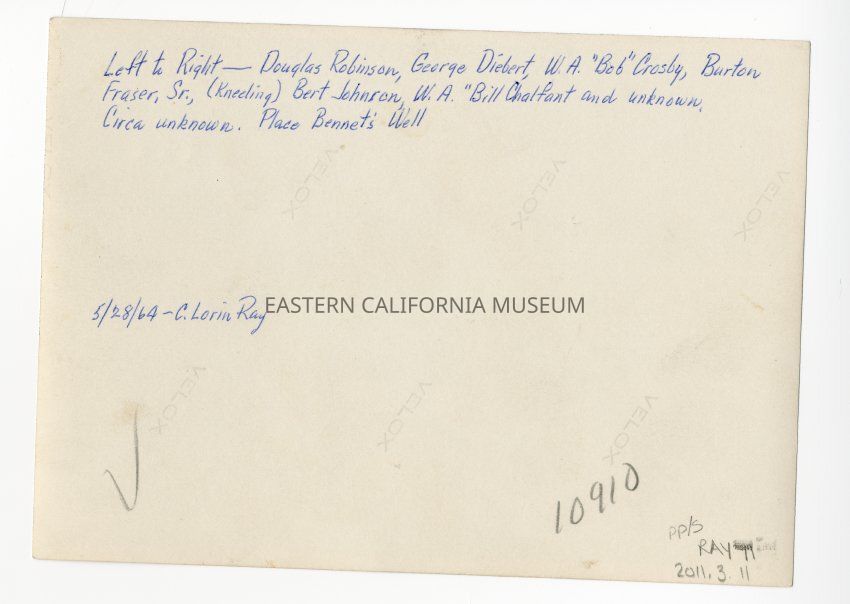 Left to Right — Douglas Robinson, George Diebert, W.A. "Bob" Crosby, Burton
Fraser, Sr., (Kneeling) Bert Johnson, W.A. "Bill Chalfant and unknown.
Circa unknown. Place Bennet's Well
VELOX VELOX VELOX
5/28/64 - C. Lorin Ray
EASTERN CALIFORNIA MUSEUM
VELOX VELOX VELOX
10910
PP/S
RAY 11
2011.3.11